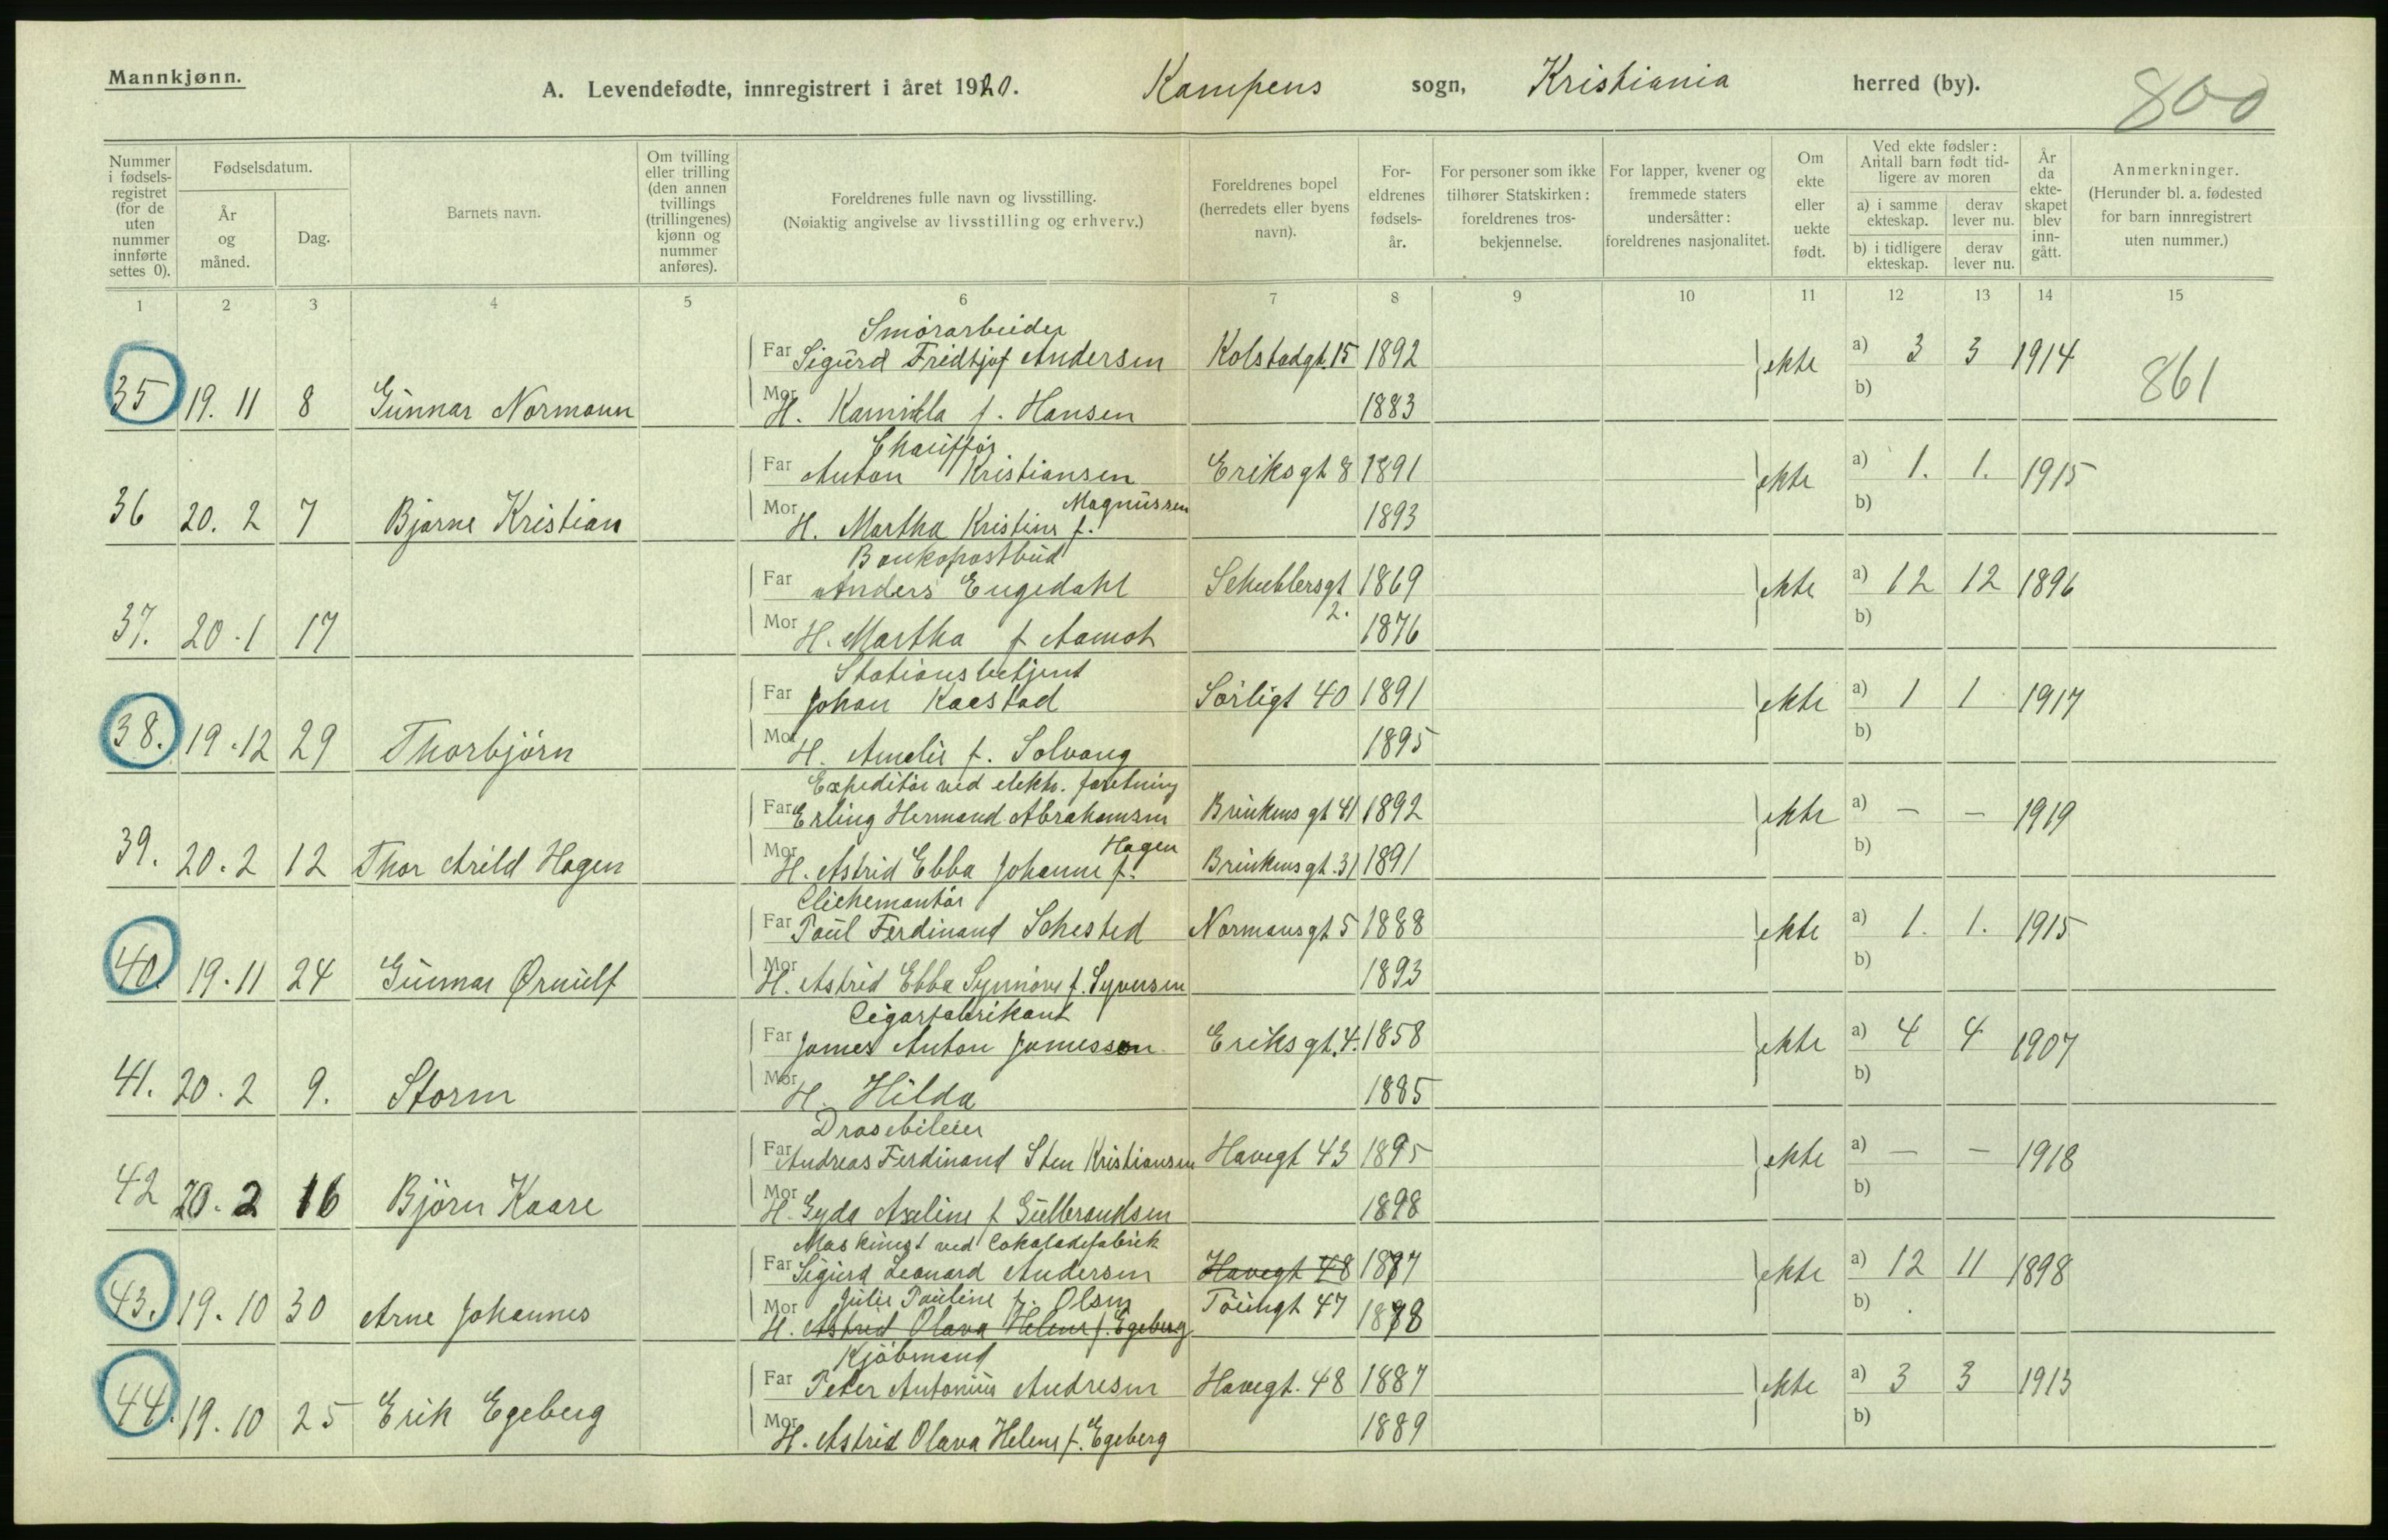 Mannkjønn.
A. Levendefødte, innregistrert i året 1920. Kampens sogn, Kristiania herred (by). 800
Nummer i fødselsregistret (for de uten nummer innførte settes 0).
Fødselsdatum.
År og måned.
Dag.
Barnets navn.
Om tvilling eller trilling (den annen tvillings (trillingenes) kjønn og nummer anføres).
Foreldrenes fulle navn og livsstilling.
(Nøiaktig angivelse av livsstilling og erhverv.)
Foreldrenes bopel (herredets eller byens navn).
Foreldrenes fødselsår.
For personer som ikke tilhører Statskirken: foreldrenes trosbekjennelse.
For lapper, kvener og fremmede staters undersåtter: foreldrenes nasjonalitet.
Om ekte eller uekte født.
Ved ekte fødsler: Antall barn født tidligere av moren
a) i samme ekteskap. derav lever nu.
b) i tidligere ekteskap. derav lever nu.
År da ekteskapet blev inngått.
Anmerkninger.
(Herunder bl. a. fødested for barn innregistrert uten nummer.)
1 2 3 4 5 6 7 8 9 10 11 12 13 14 15
Smörarbeider
Far Sigurd Fridtjof Andersen Kolstadgt. 15 1892 ekte a) 3 3 1914
35 19. 11 8 Gunnar Normann Mor H. Kamilla f. Hansen 1883 b) 861
Chaufför
Far Anton Kristiansen Eriksgt 8 1891 ekte a) 1. 1. 1915
Magnussen
36 20. 2 7 Bjarne Kristian Mor H. Martha Kristine f. 1893 b)
Bankopostbud
Far Anders Engedahl Schüblersgt 2. 1869 ekte a) 12 12 1896
37. 20. 1 17 Mor H. Martha f Aamot 1876 b)
Stationsbetjent
Far Johan Kaestad Sörligt 40 1891 ekte a) 1 1 1917
38. 19. 12 29 Thorbjörn Mor H. Amelie f. Solvang 1895 b)
Expeditör ved elektr. forretning
Far Erling Hermand Abrahamsen Brinkens gt 41 1892 ekte a) — — 1919
Hagen
39. 20. 2 12 Thor Arild Hagen Mor H. Astrid Ebba Johanne f. Brinkensgt. 31 1891 b)
Clichemontör
Far Paul Ferdinand Schested Normansgt 5 1888 ekte a) 1. 1. 1915
40. 19. 11 24 Gunnar Ørnulf Mor H. Astrid Ebba Synnöve f. Syversen 1893 b)
Cigarfabrikant
Far James Anton Jamesson Eriksgt. 4. 1858 ekte a) 4 4 1907
41. 20. 2 9. Storm Mor H. Hilda 1885 b)
Drosebileier
Far Andreas Ferdinand Sten Kristiansen Havegt 43 1895 ekte a) — — 1918
42 20. 2 16 Björn Kaare Mor H. Gyda Axeline f Gulbrandsen 1898 b)
Maskinist ved Cokoladefabrik
Far Sigurd Leonard Andersen Havegt 48 1877 ekte a) 12 11 1898
Julie Pauline f. Olsen Töiengt 47
43. 19. 10 30 Arne Johannes Mor H. Astrid Olava Helene f. Egeberg 1878 b)
Kjöbmand
Far Peter Antonius Andresen Havegt. 48 1887 ekte a) 3 3 1913
44. 19. 10 25 Erik Egeberg Mor H. Astrid Olava Helene f. Egeberg 1889 b)